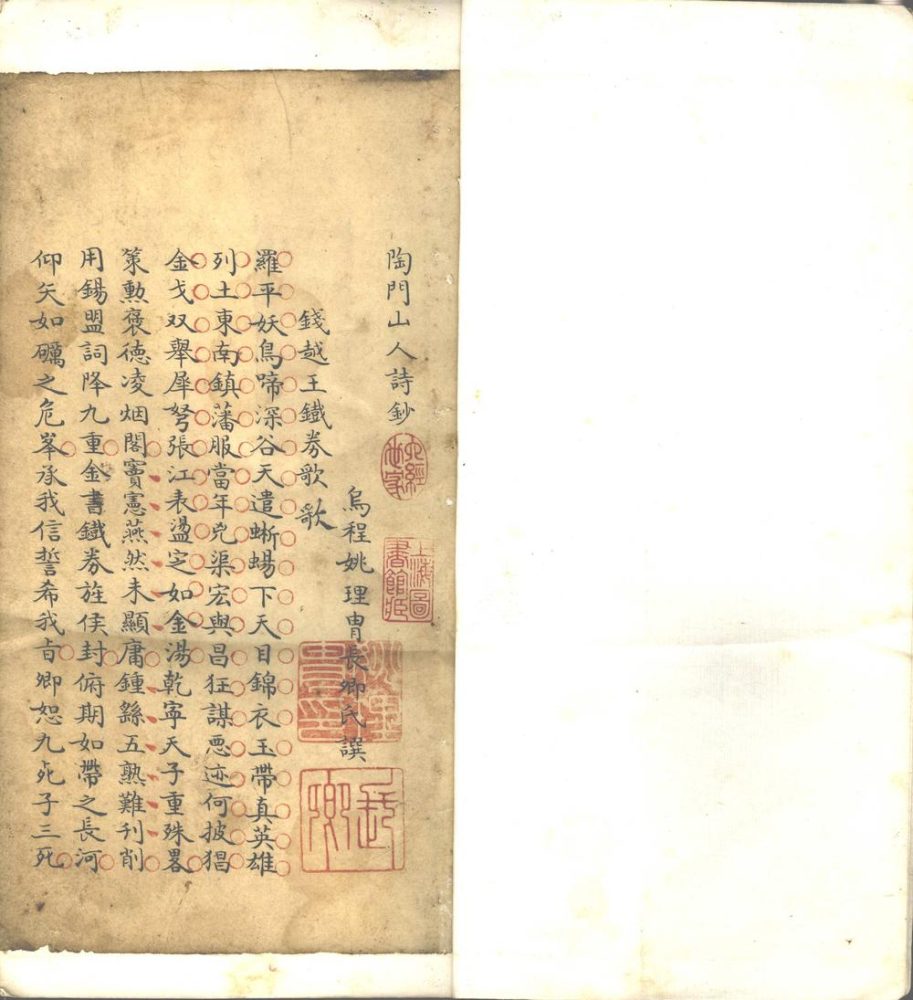 陶門山人詩鈔
六經世家
上海圖書館臧
烏程姚理冑長卿氏譔
長卿
錢越王鐵券歌歌
羅平妖鳥啼深谷天遣蜥蜴下天目錦衣玉帶真英雄
列土東南鎮藩服當年兇渠宏與昌狂謀悪迹何披猖
金戈双舉犀弩張江表盪定如金湯乾寧天子重殊畧
策勳襃德凌烟閣竇憲燕然未顯庸鍾繇五熟難刊削
用錫盟詞降九重金書鐵券旌侯封俯期如帶之長河
仰矢如礪之危峯承我信誓希我㫖卿恕九死子三死